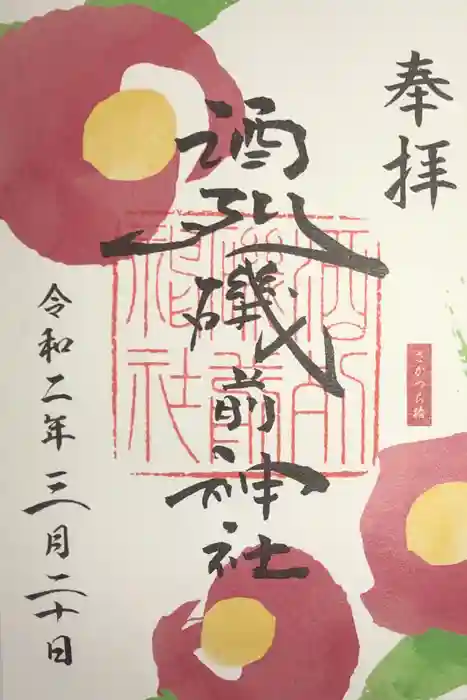 奉拝
さかつら椿
酒列磯前神社
酒列
磯前
神社
令和二年三月二十日